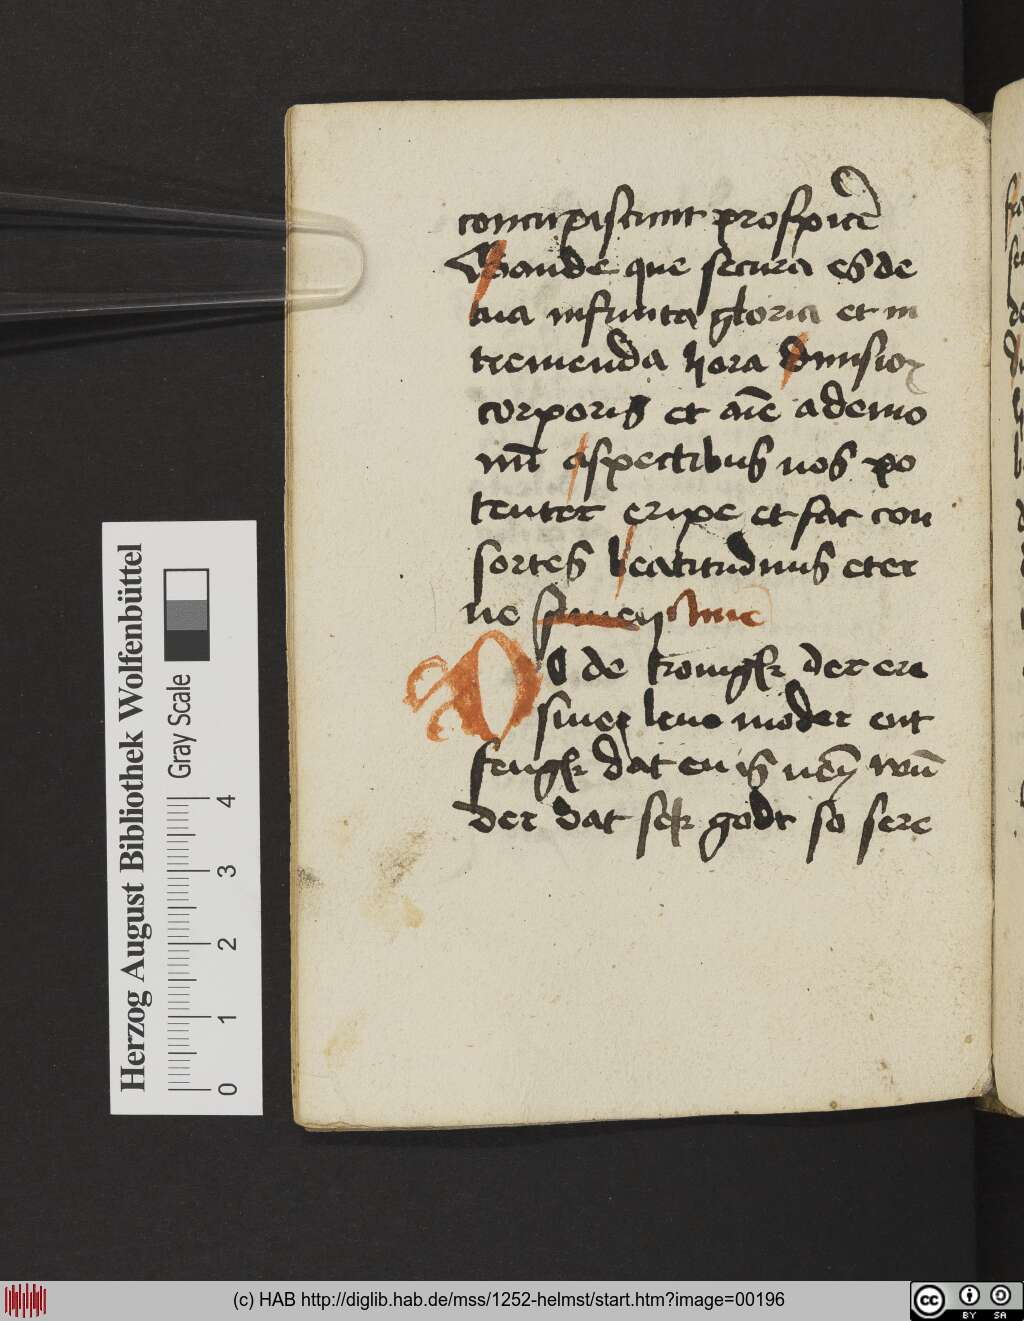 concupiscunt prospicẽ
Gaude que secura es de
tua infinita gloria et in
tremenda hora diuisioꝝ
corporis et aīe a demo
nū aspectibus nos po
tenter eripe et fac con
sortes beatitudinis eter
ne amen Ame
O de konigk der ere
siner leue moder ent
fengk dat en is neȳ wū
der dat sek godt so sere
Herzog August Bibliothek Wolfenbüttel
Gray Scale
0 1 2 3 4
(c) HAB http://diglib.hab.de/mss/1252-helmst/start.htm?image=00196
cc BY SA